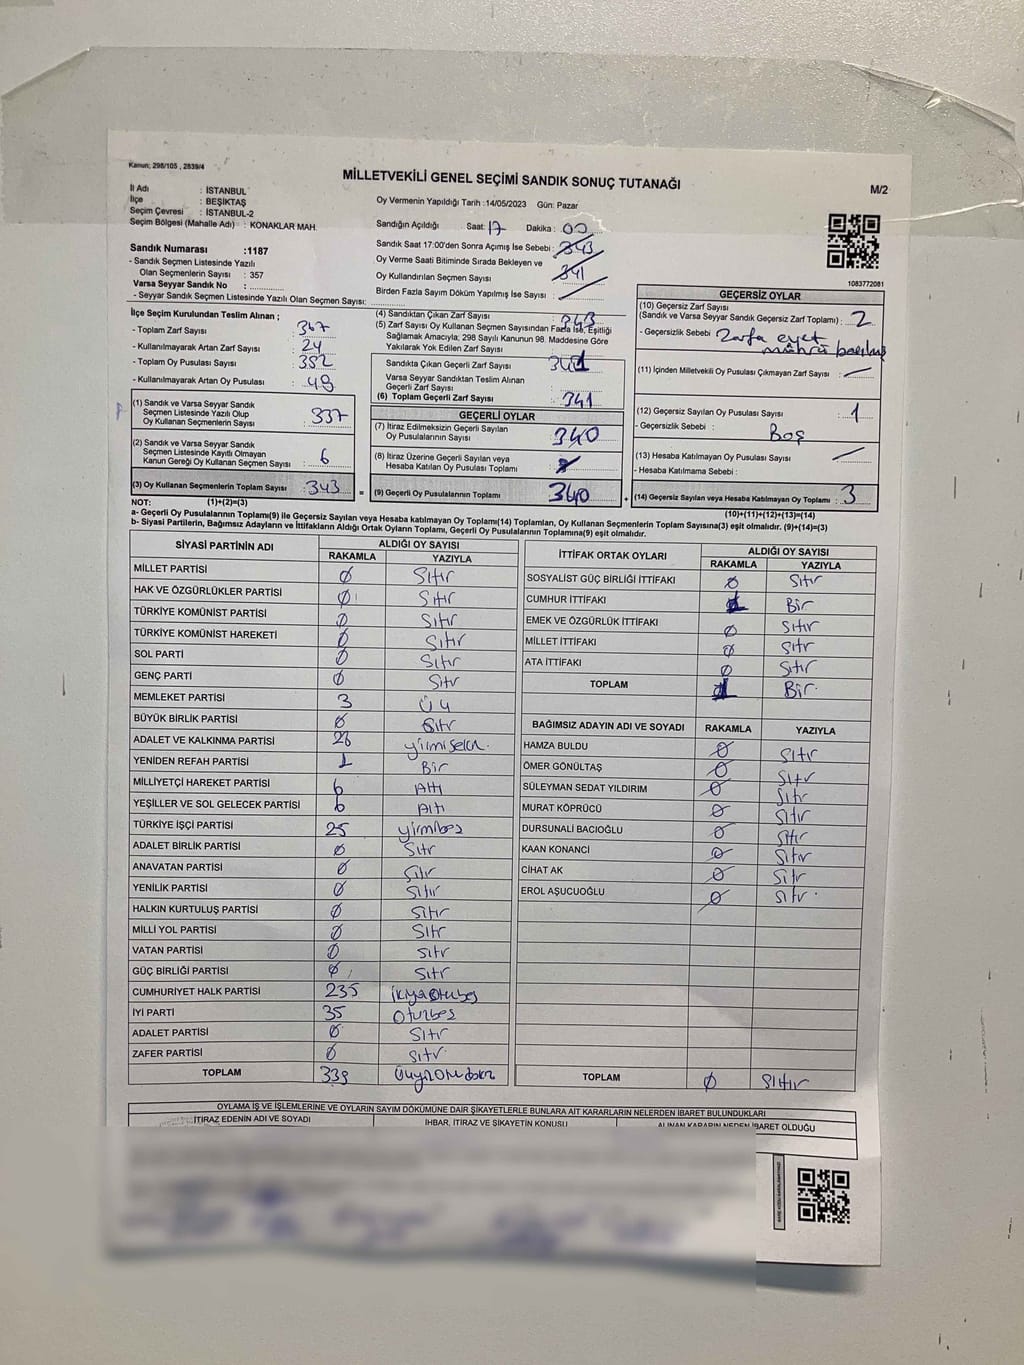 Kanun; 298/105 , 2839/4
MİLLETVEKİLİ GENEL SEÇİMİ SANDIK SONUÇ TUTANAĞI
M/2
İl Adı : İSTANBUL
İlçe : BEŞİKTAŞ
Seçim Çevresi : İSTANBUL-2
Seçim Bölgesi (Mahalle Adı) : KONAKLAR MAH.
Sandık Numarası :1187
- Sandık Seçmen Listesinde Yazılı
Olan Seçmenlerin Sayısı : 357
Varsa Seyyar Sandık No :
- Seyyar Sandık Seçmen Listesinde Yazılı Olan Seçmen Sayısı:
Oy Vermenin Yapıldığı Tarih :14/05/2023 Gün: Pazar
Sandığın Açıldığı Saat: 17 Dakika : 00
Sandık Saat 17:00'den Sonra Açımış İse Sebebi : 343
Oy Verme Saati Bitiminde Sırada Bekleyen ve
Oy Kullandırılan Seçmen Sayısı 341
Birden Fazla Sayım Döküm Yapılmış İse Sayısı :
1083772081
İlçe Seçim Kurulundan Teslim Alınan ;
- Toplam Zarf Sayısı : 367
- Kullanılmayarak Artan Zarf Sayısı : 24
- Toplam Oy Pusulası Sayısı : 392
- Kullanılmayarak Artan Oy Pusulası : 49
(1) Sandık ve Varsa Seyyar Sandık
Seçmen Listesinde Yazılı Olup
Oy Kullanan Seçmenlerin Sayısı : 337
(2) Sandık ve Varsa Seyyar Sandık
Seçmen Listesinde Kayıtlı Olmayan
Kanun Gereği Oy Kullanan Seçmen Sayısı : 6
(3) Oy Kullanan Seçmenlerin Toplam Sayısı : 343
(1)+(2)=(3)
(4) Sandıktan Çıkan Zarf Sayısı : 343
(5) Zarf Sayısı Oy Kullanan Seçmen Sayısından Fazla İse, Eşitliği
Sağlamak Amacıyla; 298 Sayılı Kanunun 98. Maddesine Göre
Yakılarak Yok Edilen Zarf Sayısı
Sandıkta Çıkan Geçerli Zarf Sayısı : 341
Varsa Seyyar Sandıktan Teslim Alınan
Geçerli Zarf Sayısı :
(6) Toplam Geçerli Zarf Sayısı : 341
GEÇERLİ OYLAR
(7) İtiraz Edilmeksizin Geçerli Sayılan
Oy Pusulalarının Sayısı : 340
(8) İtiraz Üzerine Geçerli Sayılan veya
Hesaba Katılan Oy Pusulası Toplamı :
= (9) Geçerli Oy Pusulalarının Toplamı : 340
GEÇERSİZ OYLAR
(10) Geçersiz Zarf Sayısı
(Sandık ve Varsa Seyyar Sandık Geçersiz Zarf Toplamı) : 2
- Geçersizlik Sebebi : Zarfa evet
mührü basılmış
(11) İçinden Milletvekili Oy Pusulası Çıkmayan Zarf Sayısı :
(12) Geçersiz Sayılan Oy Pusulası Sayısı : 1
- Geçersizlik Sebebi : Boş
(13) Hesaba Katılmayan Oy Pusulası Sayısı :
- Hesaba Katılmama Sebebi :
+ (14) Geçersiz Sayılan veya Hesaba Katılmayan Oy Toplamı : 3
(10)+(11)+(12)+(13)=(14)
NOT:
a- Geçerli Oy Pusulalarının Toplamı(9) ile Geçersiz Sayılan veya Hesaba katılmayan Oy Toplamı(14) Toplamları, Oy Kullanan Seçmenlerin Toplam Sayısına(3) eşit olmalıdır. (9)+(14)=(3)
b- Siyasi Partilerin, Bağımsız Adayların ve İttifakların Aldığı Ortak Oyların Toplamı, Geçerli Oy Pusulalarının Toplamına(9) eşit olmalıdır.
SİYASİ PARTİNİN ADI ALDIĞI OY SAYISI
RAKAMLA YAZIYLA
MİLLET PARTİSİ 0 Sıfır
HAK VE ÖZGÜRLÜKLER PARTİSİ 0 Sıfır
TÜRKİYE KOMÜNİST PARTİSİ 0 Sıfır
TÜRKİYE KOMÜNİST HAREKETİ 0 Sıfır
SOL PARTİ 0 Sıfır
GENÇ PARTİ 0 Sıfır
MEMLEKET PARTİSİ 3 Üç
BÜYÜK BİRLİK PARTİSİ 0 Sıfır
ADALET VE KALKINMA PARTİSİ 28 yirmisekiz
YENİDEN REFAH PARTİSİ 1 Bir
MİLLİYETÇİ HAREKET PARTİSİ 6 Altı
YEŞİLLER VE SOL GELECEK PARTİSİ 6 Altı
TÜRKİYE İŞÇİ PARTİSİ 25 yirmibeş
ADALET BİRLİK PARTİSİ 0 Sıfır
ANAVATAN PARTİSİ 0 Sıfır
YENİLİK PARTİSİ 0 Sıfır
HALKIN KURTULUŞ PARTİSİ 0 Sıfır
MİLLİ YOL PARTİSİ 0 Sıfır
VATAN PARTİSİ 0 Sıfır
GÜÇ BİRLİĞİ PARTİSİ 0 Sıfır
CUMHURİYET HALK PARTİSİ 235 ikiyüzotuzbeş
İYİ PARTİ 35 Otuzbeş
ADALET PARTİSİ 0 Sıfır
ZAFER PARTİSİ 0 Sıfır
TOPLAM 339 Üçyüzotuzdokuz
İTTİFAK ORTAK OYLARI ALDIĞI OY SAYISI
RAKAMLA YAZIYLA
SOSYALİST GÜÇ BİRLİĞİ İTTİFAKI 0 Sıfır
CUMHUR İTTİFAKI 1 Bir
EMEK VE ÖZGÜRLÜK İTTİFAKI 0 Sıfır
MİLLET İTTİFAKI 0 Sıfır
ATA İTTİFAKI 0 Sıfır
TOPLAM 1 Bir
BAĞIMSIZ ADAYIN ADI VE SOYADI RAKAMLA YAZIYLA
HAMZA BULDU 0 Sıfır
ÖMER GÖNÜLTAŞ 0 Sıfır
SÜLEYMAN SEDAT YILDIRIM 0 Sıfır
MURAT KÖPRÜCÜ 0 Sıfır
DURSUNALİ BACIOĞLU 0 Sıfır
KAAN KONANCİ 0 Sıfır
CİHAT AK 0 Sıfır
EROL AŞUCUOĞLU 0 Sıfır
TOPLAM 0 Sıfır
OYLAMA İŞ VE İŞLEMLERİNE VE OYLARIN SAYIM DÖKÜMÜNE DAİR ŞİKAYETLERLE BUNLARA AİT KARARLARIN NELERDEN İBARET BULUNDUKLARI
İTİRAZ EDENİN ADI VE SOYADI İHBAR, İTİRAZ VE ŞİKAYETİN KONUSU ALINAN KARARIN NEDEN İBARET OLDUĞU